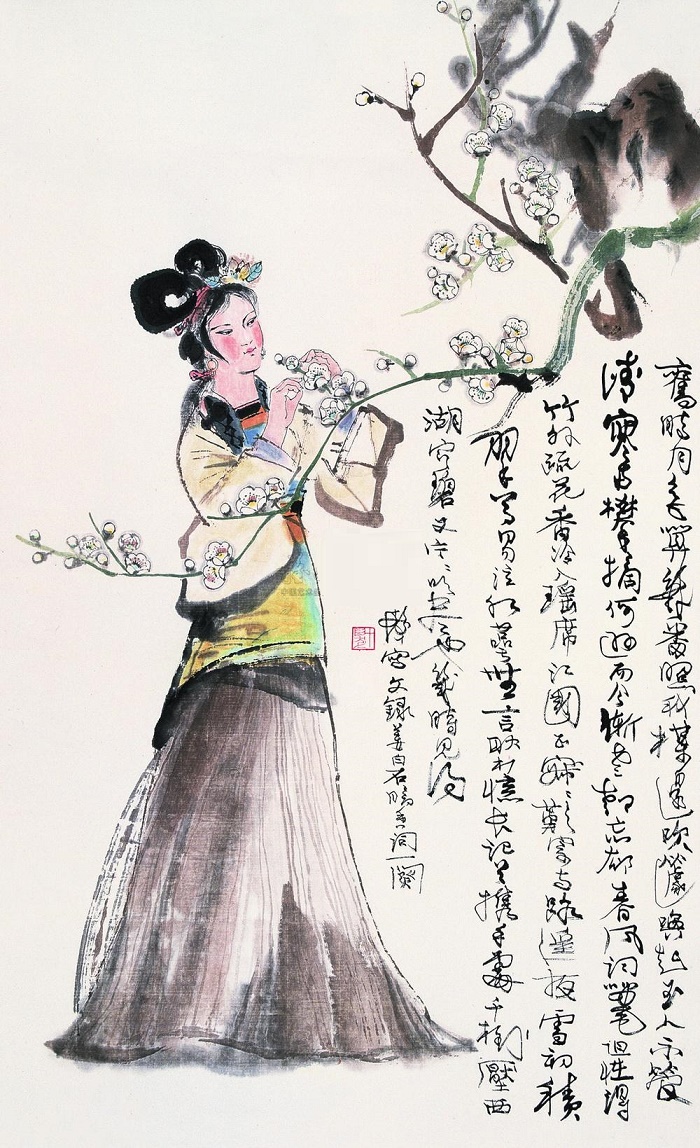 舊時月色算幾番照我梅邊吹篴喚起玉人不管
清寒与攀摘何逊而今漸老都忘却春風詞筆但怪得
竹外疏花香冷入瑶席江國正寂寂歎寄与路遥夜雪初積
翠尊易泣红萼無言耿相憶長記曾攜手處千樹壓西
湖寒碧又片片吹盡也幾時見得
写又録姜白石暗香詞一闋